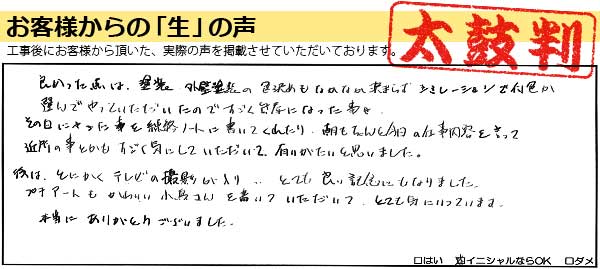 お客様からの「生」の声
太鼓判
工事後にお客様から頂いた、実際の声を掲載させていただいております。
良かった点は、塗装 外壁塗装の色決めもなかなか決まらず シミュレーションで何色か
選んでやっていただいたのですごく参考になった事を
その日にやった事を連絡ノートに書いてくれたり、朝もちゃんと今日の仕事内容を言って
近所の事とかもすごく気にしていただいて、有りがたいと思いました。
後は、とにかくテレビの撮影が入り とても良い記念にもなりました。
プチアートも かわいい小鳥さんを書いていただいて、とても気にいっています。
本当に ありがとうございました。
口はい イニシャルならOK 口ダメ